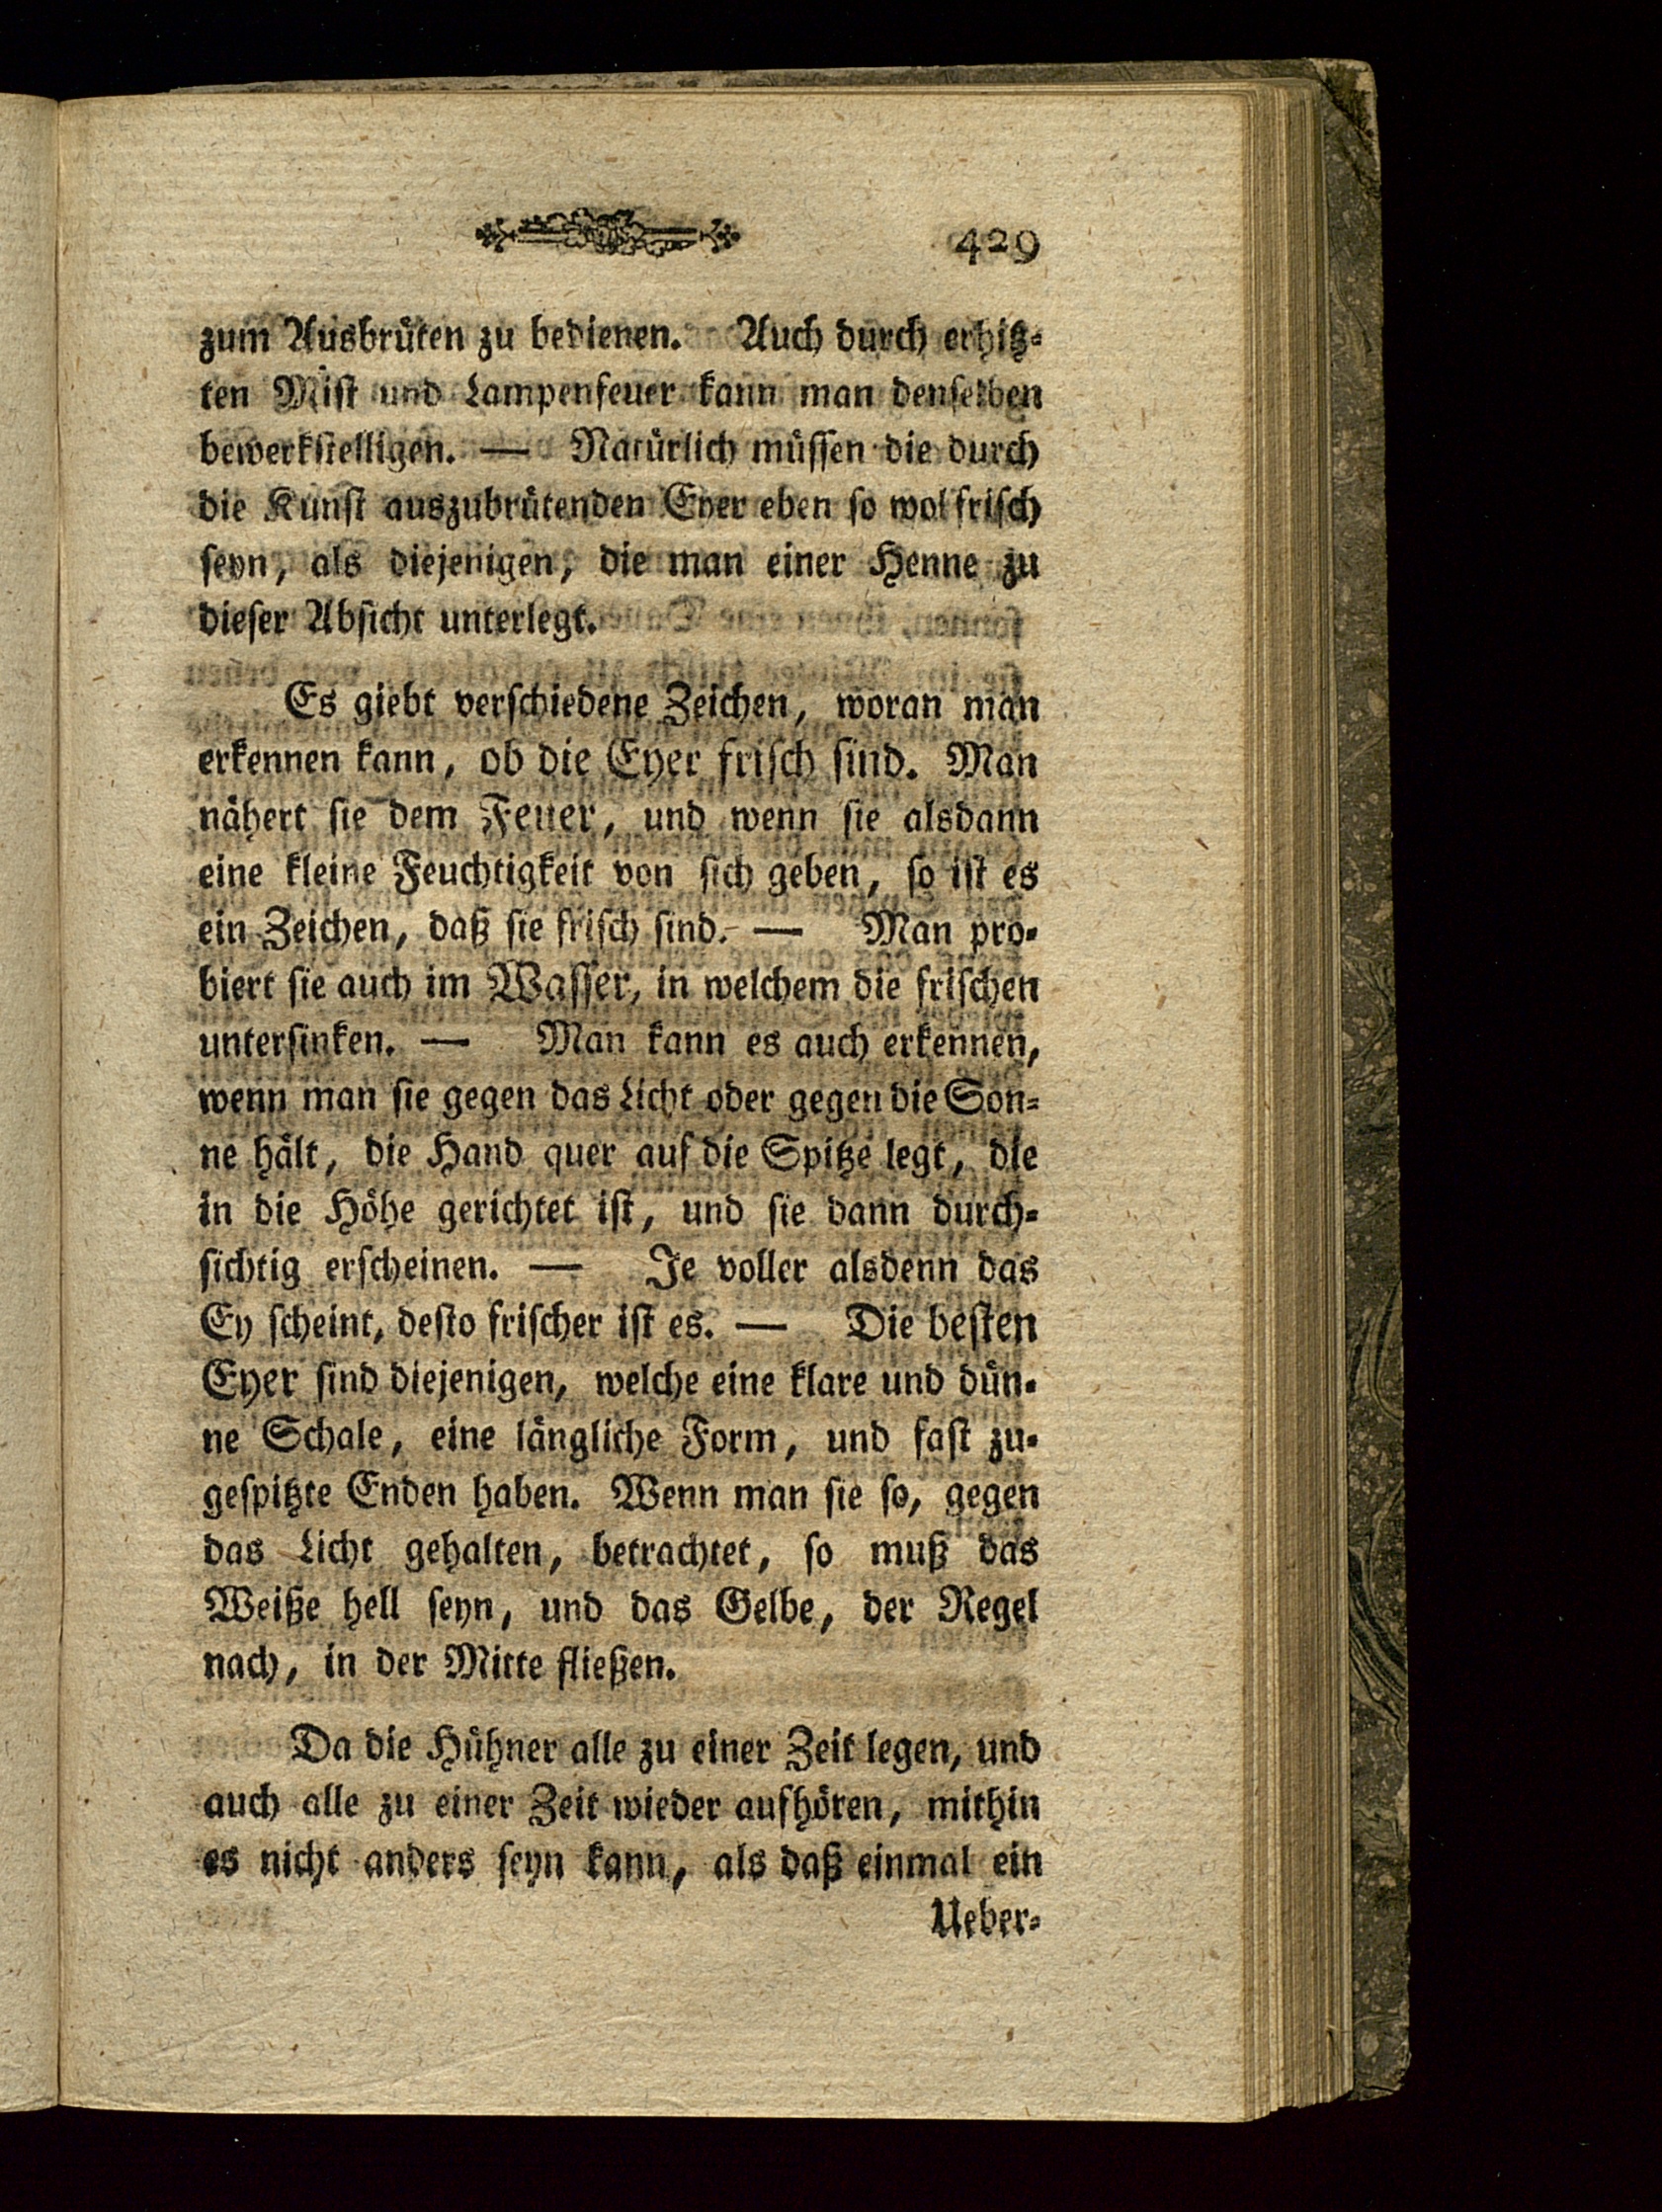 429
zum Ausbrüten zu bedienen. Auch durch erhitz-
ten Mist und Lampenfeuer kann man denselben
bewerkstelligen. — Natürlich müssen die durch
die Kunst auszubrütenden Eyer eben so wol frisch
seyn, als diejenigen, die man einer Henne zu
dieser Absicht unterlegt.
Es giebt verschiedene Zeichen, woran man
erkennen kann, ob die Eyer frisch sind. Man
nähert sie dem Feuer, und wenn sie alsdann
eine kleine Feuchtigkeit von sich geben, so ist es
ein Zeichen, daß sie frisch sind. — Man pro-
biert sie auch im Wasser, in welchem die frischen
untersinken. — Man kann es auch erkennen,
wenn man sie gegen das Licht oder gegen die Son-
ne hält, die Hand quer auf die Spitze legt, die
in die Höhe gerichtet ist, und sie dann durch-
sichtig erscheinen. — Je voller alsdenn das
Ey scheint, desto frischer ist es. — Die besten
Eyer sind diejenigen, welche eine klare und dün-
ne Schale, eine längliche Form, und fast zu-
gespitzte Enden haben. Wenn man sie so, gegen
das Licht gehalten, betrachtet, so muß das
Weiße hell seyn, und das Gelbe, der Regel
nach, in der Mitte fließen.
Da die Hühner alle zu einer Zeit legen, und
auch alle zu einer Zeit wieder aufhören, mithin
es nicht anders seyn kann, als daß einmal ein
Ueber-